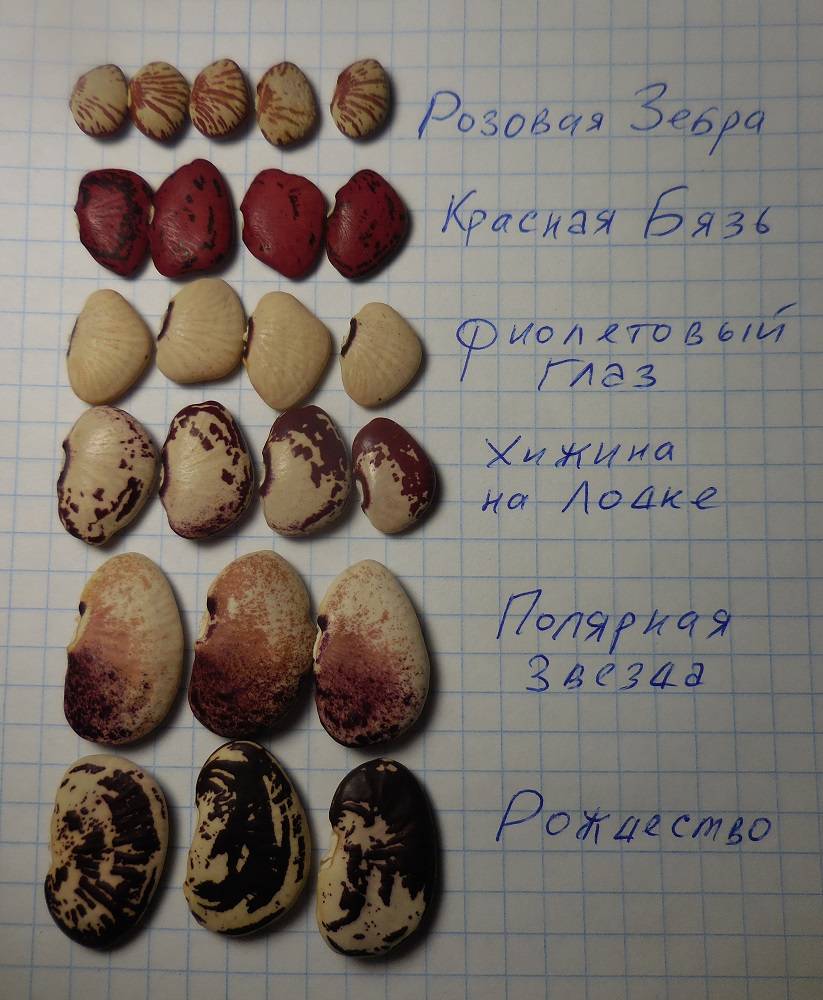 Розовая Зебра
Красная Бязь
Фиолетовый
Глаз
Хижина
на Лодке
Полярная
Звезда
Рождество